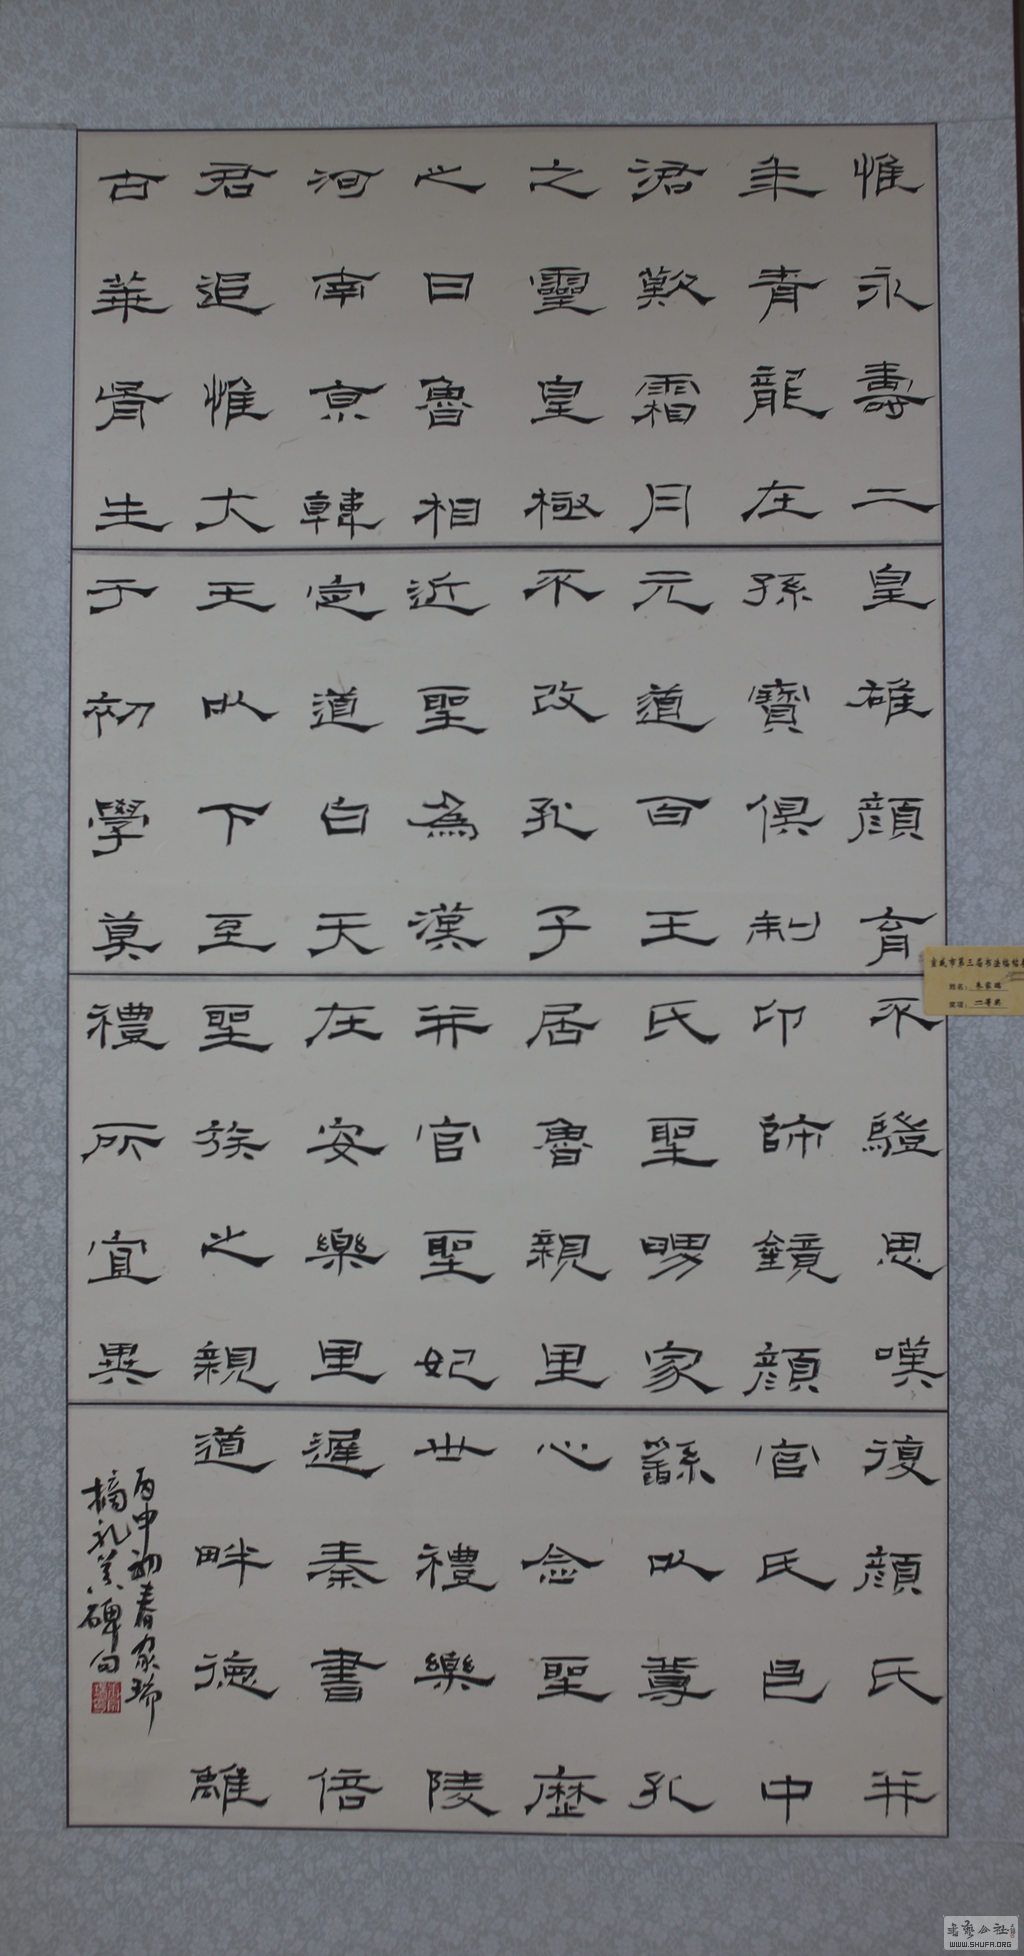 惟永壽二
年青龍在
涒歎霜月
之靈皇極
之日魯相
河南京韓
君追惟大
古華胥生
皇雄顏育
孫寶俱制
元道百王
不改孔子
近聖為漢
定道自天
王以下至
于初學莫
不驥思嘆
卬師鏡顏
氏聖舅家
居魯親里
并官聖妃
在安樂里
聖族之親
禮所宜異
復顏氏并
官氏邑中
繇以尊孔
心念聖歷
世禮樂陵
遲秦書倍
道畔德離
丙申初春家瑞
摘礼器碑句
宣威市第三届书法临帖
姓名：朱家瑞
奖项：二等奖
书艺公社
WWW.SHUFA.ORG